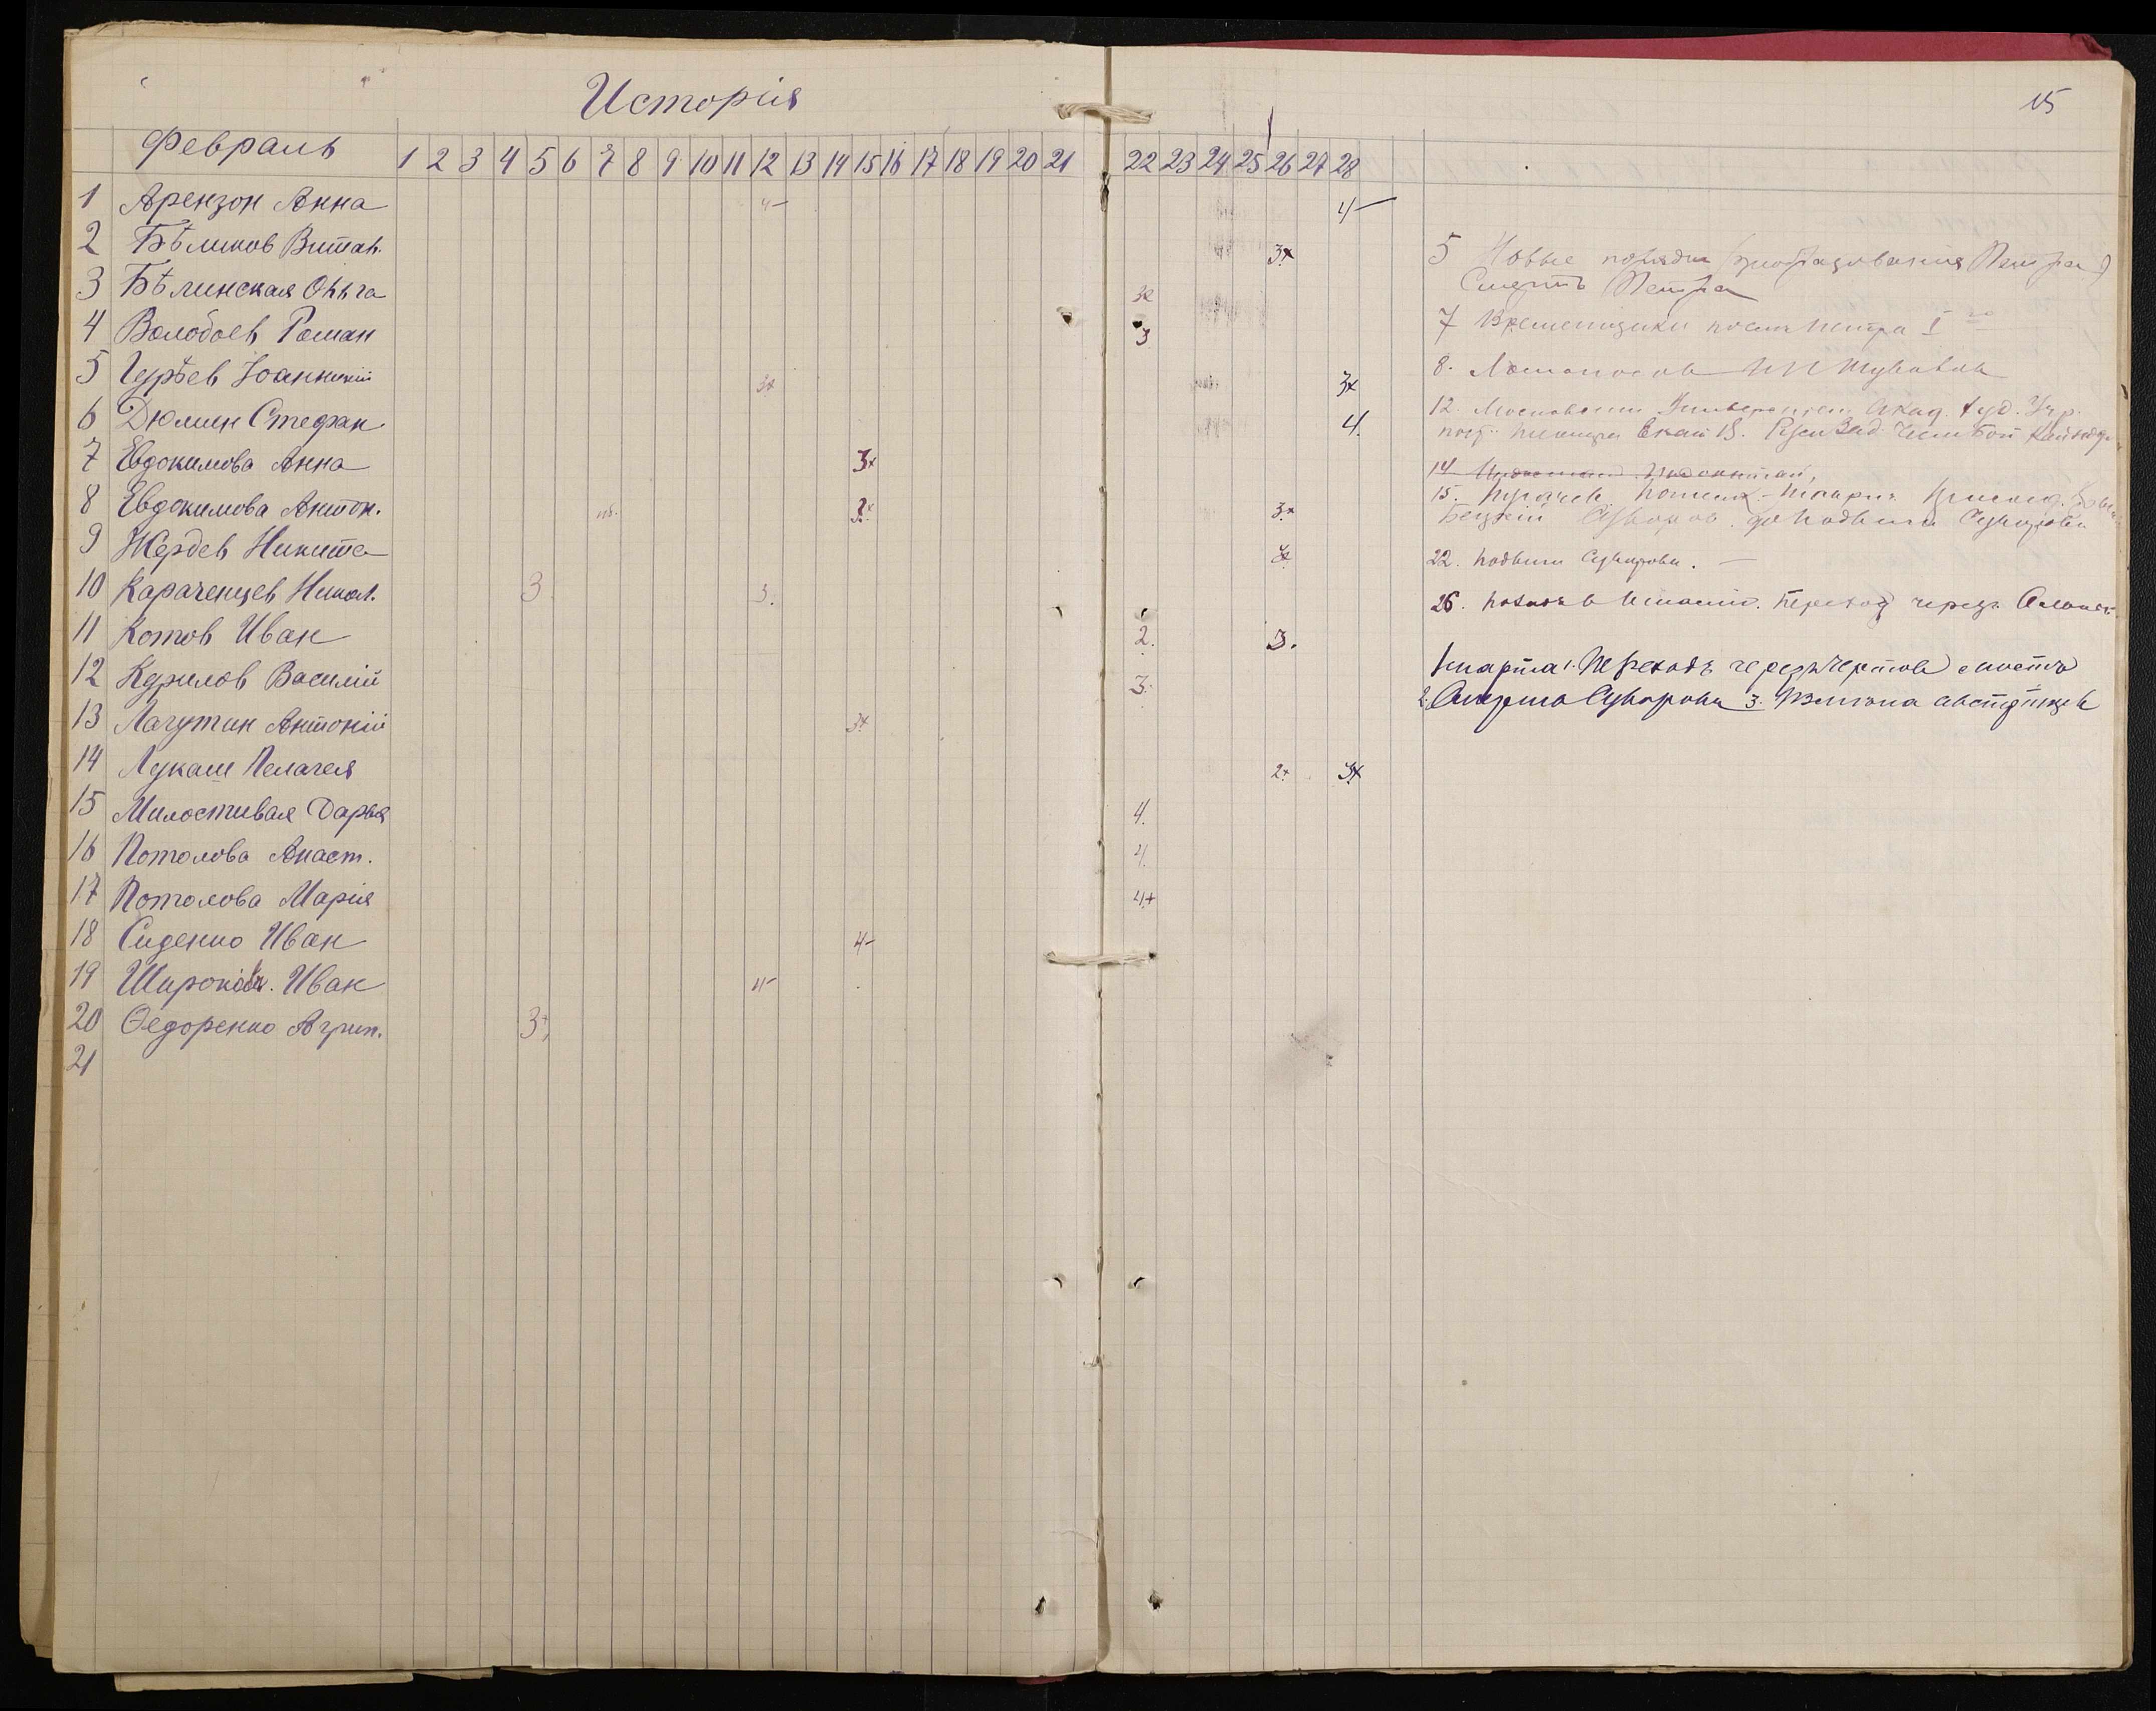 Исторія
15
Февраль 1 2 3 4 5 6 7 8 9 10 11 12 13 14 15 16 17 18 19 20 21 22 23 24 25 26 27 28
1 Арензон Анна 4- 4-
2 Бѣликов Витал. 3+
3 Бѣлинская Ольга 3
4 Волобоев Роман 3
5 Гурѣев Іоанникій 3+ 3+
6 Дюмин Стефан 4.
7 Евдокимова Анна 3+
8 Евдокимова Антон. нб. 3+
9 Жердев Никита
10 Караченцев Никол. 3 3.
11 Котов Иван 2. 3.
12 Курилов Василій 3.
13 Лагутин Антоній 3+
14 Лукаш Пелагея 2+ 3+
15 Милостивая Дарья 4.
16 Потолова Анаст. 4.
17 Потолова Марія 4+
18 Сиденко Иван 4-
19 Широков. Иван 4-
20 Ѳедоренко Агрип. 3+
21
5 Новые порядки (преобразования Петра)
Смерть Петра
7 Временщики после Петра I го
8. Ломоносов И И Шувалов
12. Московский Университет Акад. Худ.
15. Пугачев. Потемк.
Бецкій Суворов. Подвиги Суворова
22. Подвиги Суворова. —
26. Поход в Италію. Переход через
1 марта 1. Переходъ черезъ Чертов мостъ
2. Смерть Суворова 3. австрійцев